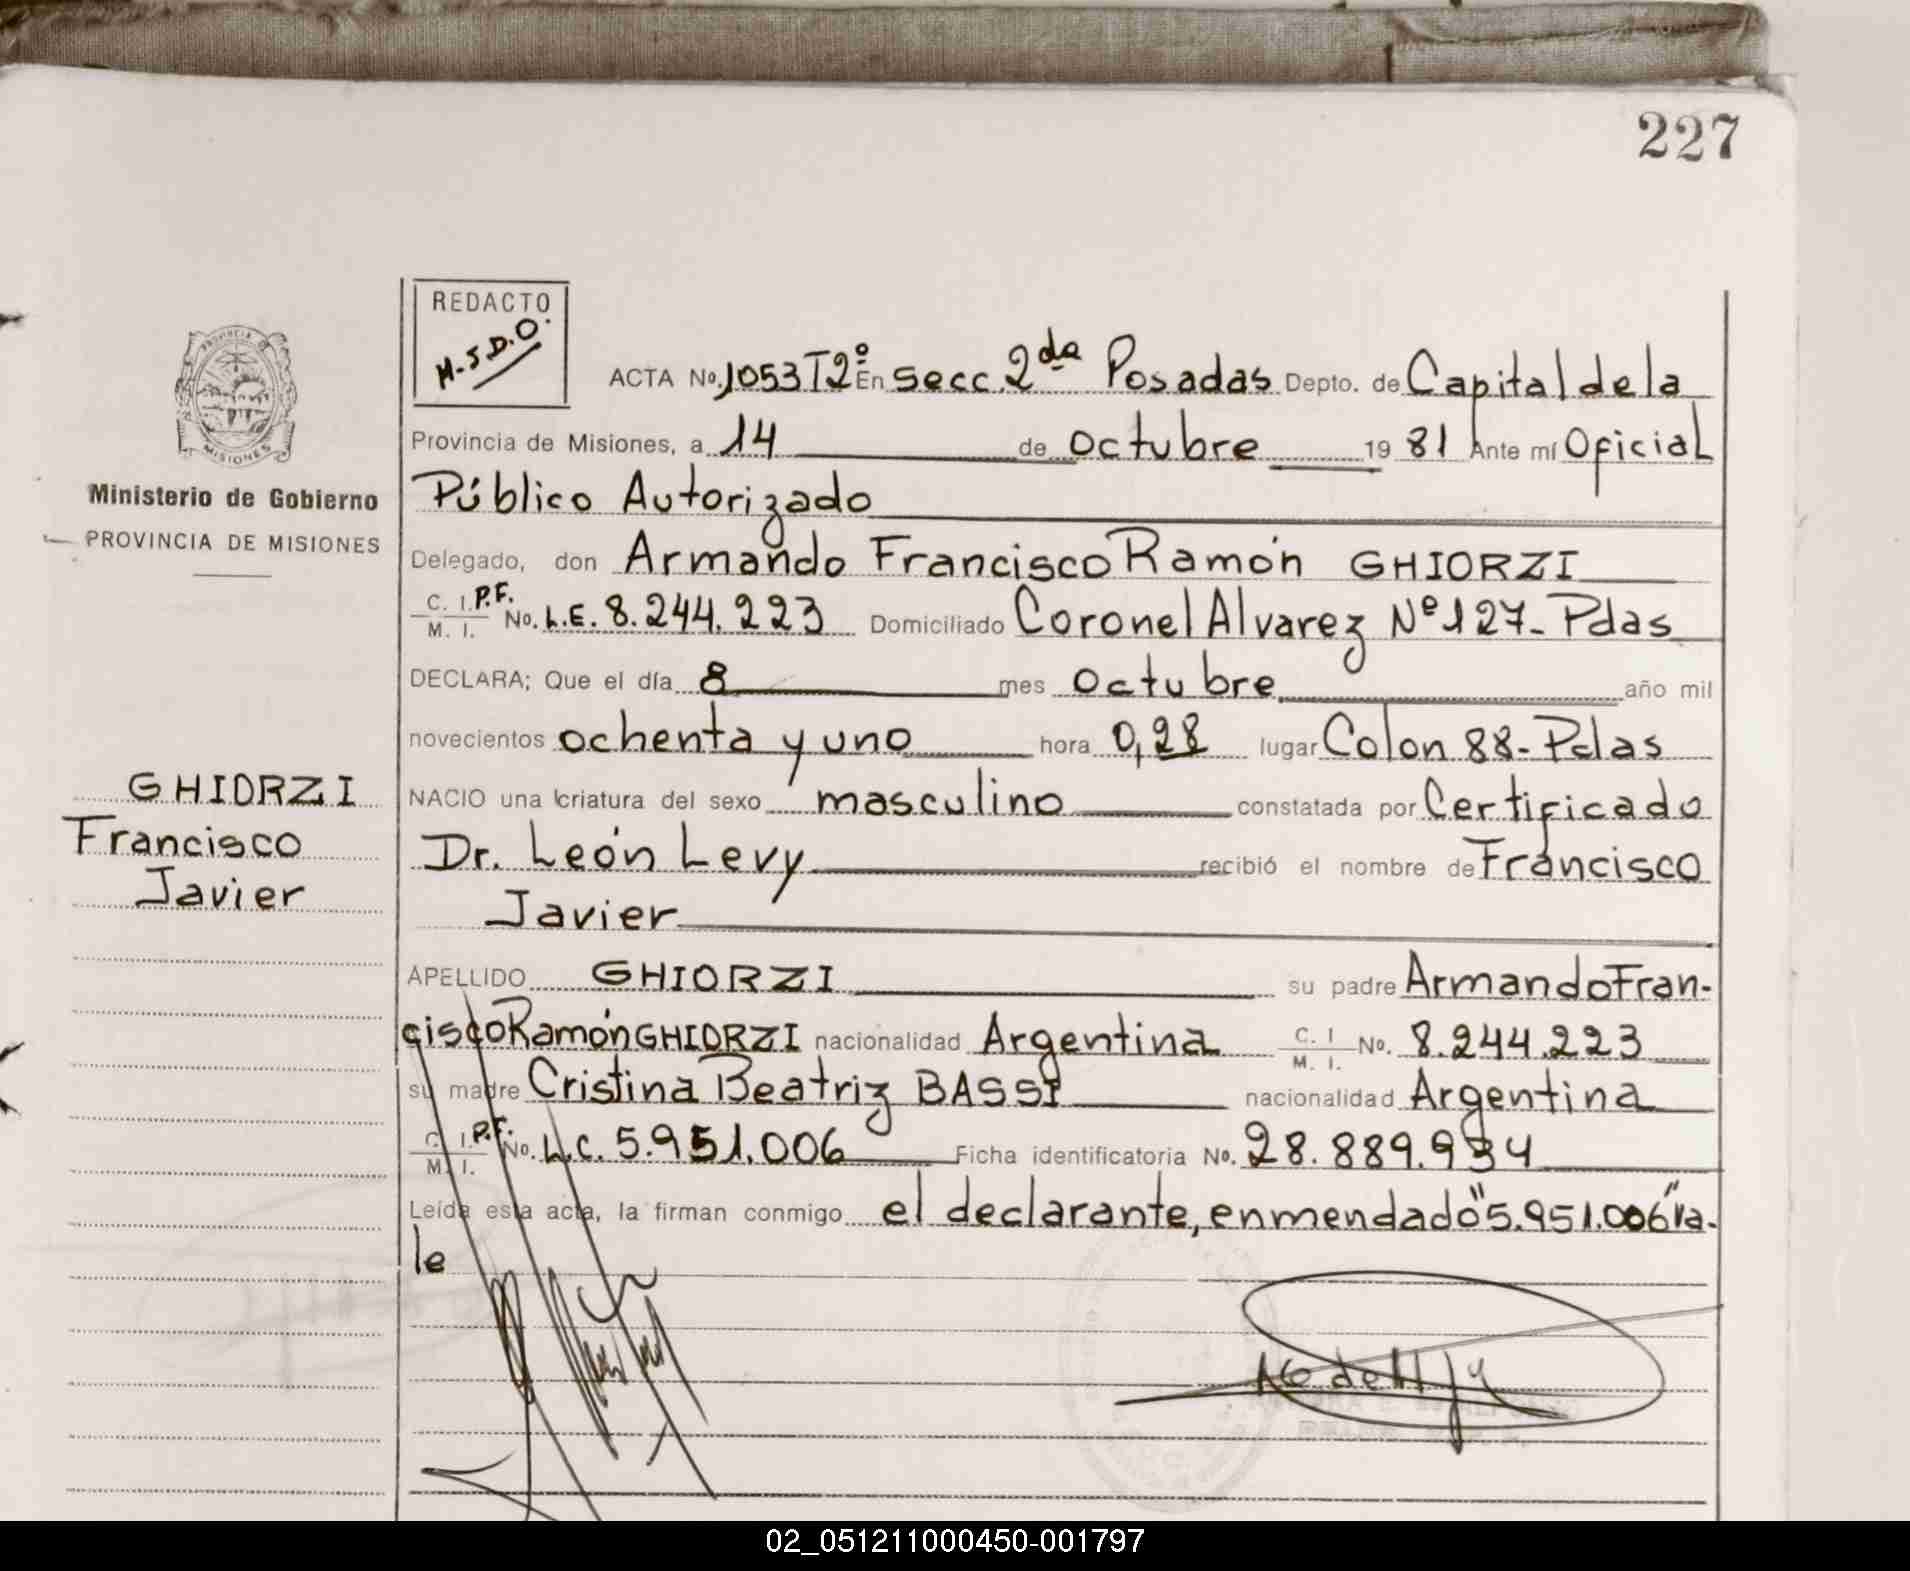 227
REDACTO
M.S.D.O.
ACTA No. 1053 T2º En secc. 2da Posadas Depto. de Capital de la
Provincia de Misiones, a 14 de octubre 19 81 Ante mí Oficial
Público Autorizado
Delegado, don Armando Francisco Ramón GHIORZI
C. I. P.F.
M. I.
No. L.E. 8.244.223 Domiciliado Coronel Alvarez Nº 127-Pdas
DECLARA; Que el día 8 mes octubre año mil
novecientos ochenta y uno hora 0,28 lugar Colon 88-Pdas
NACIO una criatura del sexo masculino constatada por Certificado
Dr. León Levy recibió el nombre de Francisco
Javier
APELLIDO GHIORZI su padre Armando Fran-
cisco Ramón GHIORZI nacionalidad Argentina C. I. M. I. No. 8.244.223
su madre Cristina Beatriz BASSI nacionalidad Argentina
C. I. P.F.
M. I.
No. L.C. 5.951.006 Ficha identificatoria No. 28.889.934
Leída esta acta, la firman conmigo el declarante, enmendado "5.951.006" va-
le
PROVINCIA D
MISIONES
Ministerio de Gobierno
PROVINCIA DE MISIONES
GHIORZI
Francisco
Javier
02_051211000450-001797